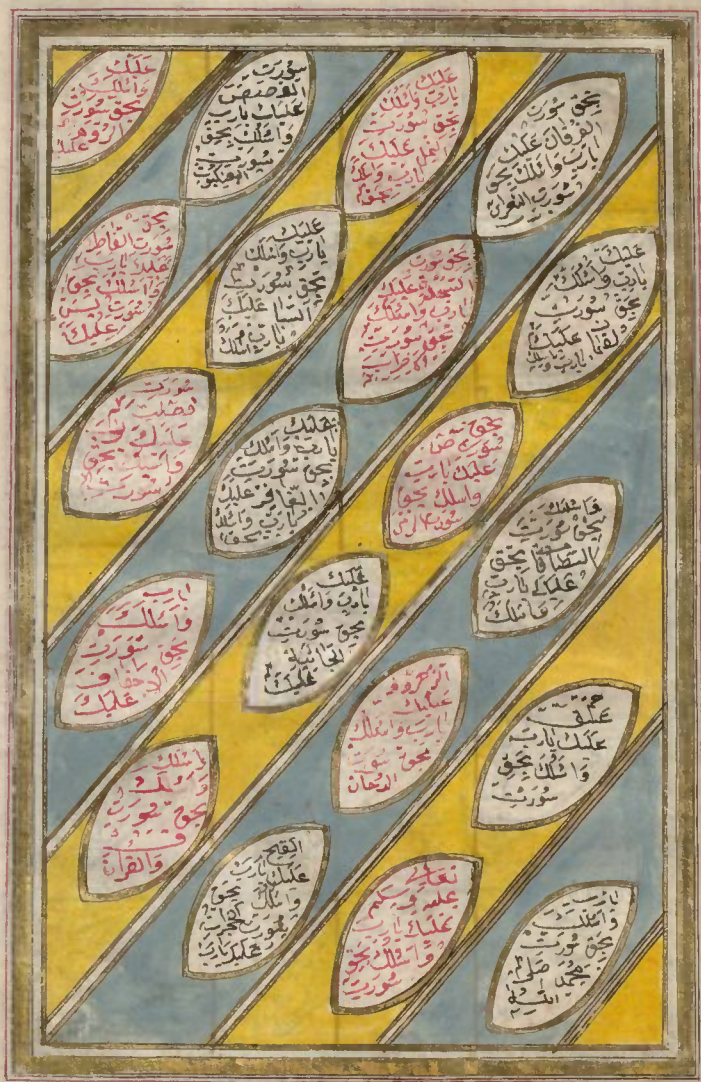 بحق سورت
الفرقان عليك
يارب واسئلك بحق
سورت الشعرا
عليك
يارب واسئلك
بحق سورت
النمل عليك
يارب واسئلك
بحق
سورت
القصص
عليك يارب
واسئلك بحق
سورت
العنكبوت
عليك
واسئلك
بحق سورت
الروم
عليك
عليك
يارب واسئلك
بحق سورت
لقمان عليك
يارب
بحق سورت
السجدة عليك
يارب واسئلك
بحق سورت
عليك
يارب واسئلك
بحق سورت
السبا عليك
يارب
واسئلك
بحق
سورت الفاطر
عليك يارب
واسئلك بحق
سورت يس
عليك
واسئلك
بحق سورت
بحق
عليك يارب
واسئلك
بحق
سورت ص
عليك يارب
واسئلك بحق
سورت الزمر
عليك
يارب واسئلك
بحق سورت
الغافر عليك
يارب واسئلك
بحق
سورت
فصلت
واسئلك بحق
سورت
حمعسق
عليك يارب
واسئلك بحق
سورت
الزخروف
عليك
يارب واسئلك
بحق سورت
الدخان
عليك
يارب واسئلك
بحق سورت
الجاثية
عليك
يارب
واسئلك
بحق سورت
الاحقاف
عليك
يارب
واسئلك
بحق سورت
محمد صلى
الله
تعالى
عليه وسلم
عليك يارب
واسئلك بحق
سورت
الفتح
عليك يارب
واسئلك بحق
سورت الحجرات
عليك يارب
واسئلك
بحق سورت
ق
والقران